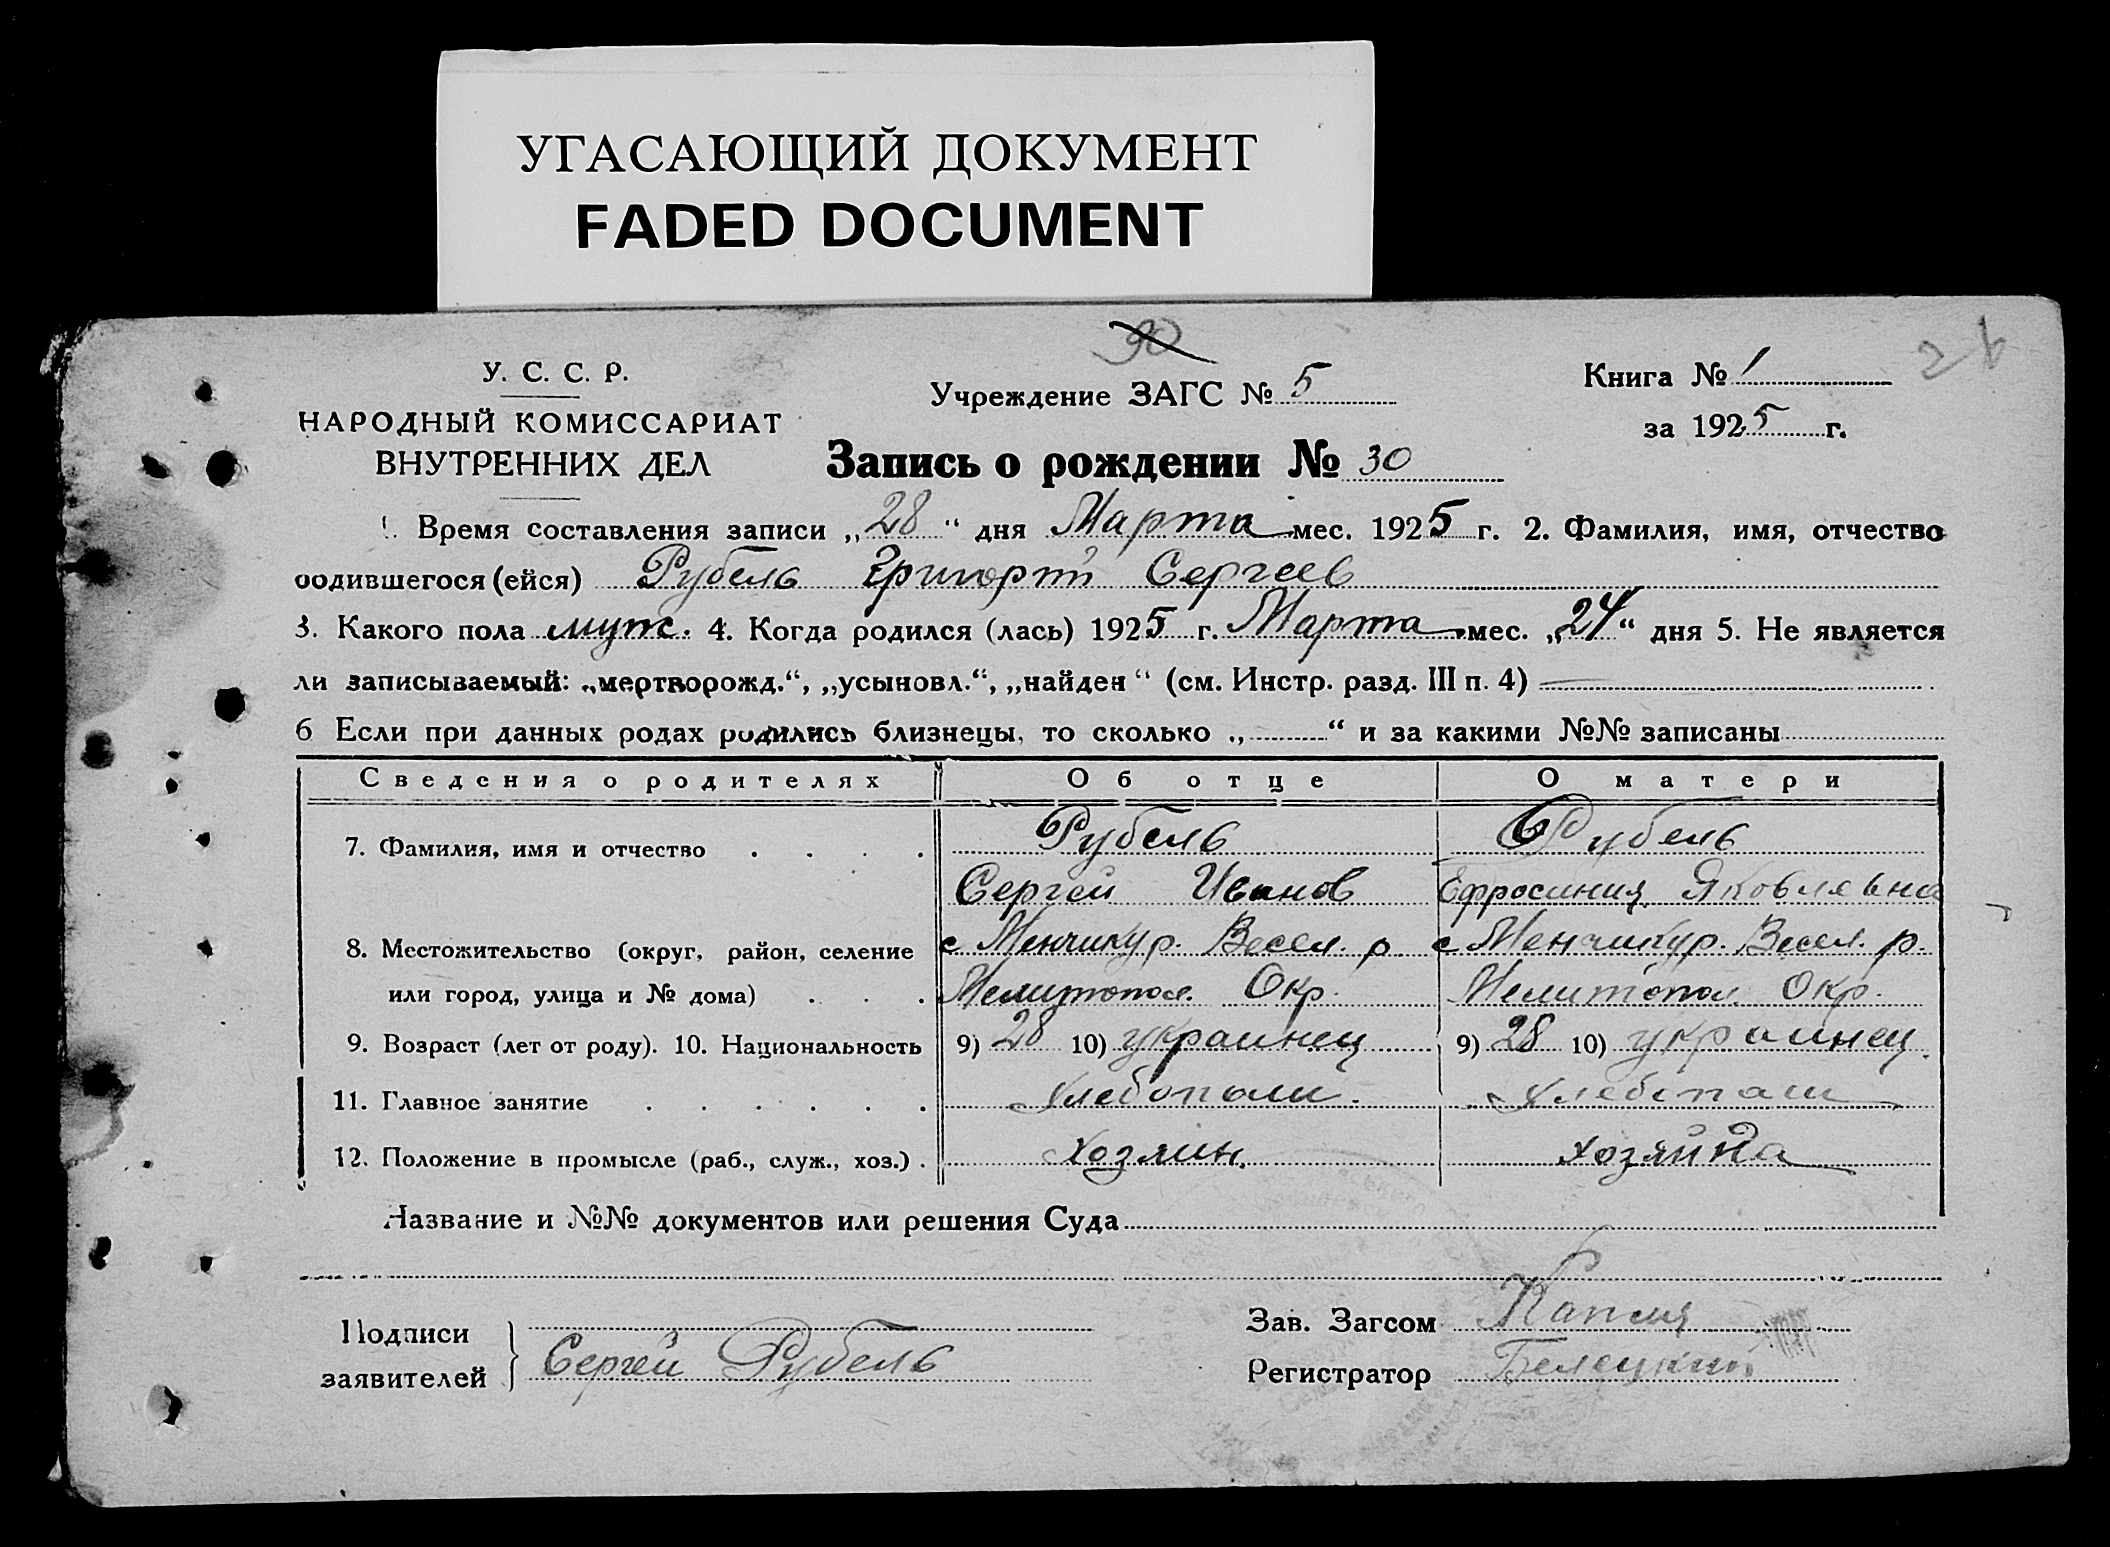 УГАСАЮЩИЙ ДОКУМЕНТ
FADED DOCUMENT
30
26
У. С. С. Р.
НАРОДНЫЙ КОМИССАРИАТ
ВНУТРЕННИХ ДЕЛ
Учреждение ЗАГС № 5
Книга № 1
за 1925 г.
Запись о рождении № 30
1. Время составления записи „28“ дня Марта мес. 1925 г. 2. Фамилия, имя, отчество
родившегося (ейся) Рубель Григорий Сергеев
3. Какого пола муж. 4. Когда родился (лась) 1925 г. Марта мес. „24“ дня 5. Не является
ли записываемый: „мертворожд.“, „усыновл.“, „найден“ (см. Инстр. разд. III п. 4) —
6 Если при данных родах родились близнецы, то сколько „ “ и за какими №№ записаны
Сведения о родителях Об отце О матери
7. Фамилия, имя и отчество Рубель Рубель
Сергей Иванов Ефросиния Яковлевна
8. Местожительство (округ, район, селение с Менчикур. Весел. р. с Менчикур. Весел. р.
или город, улица и № дома) Мелитопол. Окр. Мелитопол. Окр.
9. Возраст (лет от роду). 10. Национальность 9) 28 10) украинец 9) 28 10) украинец.
11. Главное занятие Хлебопаш. Хлебопаш
12. Положение в промысле (раб., служ., хоз.) хозяин. хозяйка
Название и №№ документов или решения Суда
Подписи
заявителей } Сергей Рубель
Зав. Загсом Капля
Регистратор Белецкий